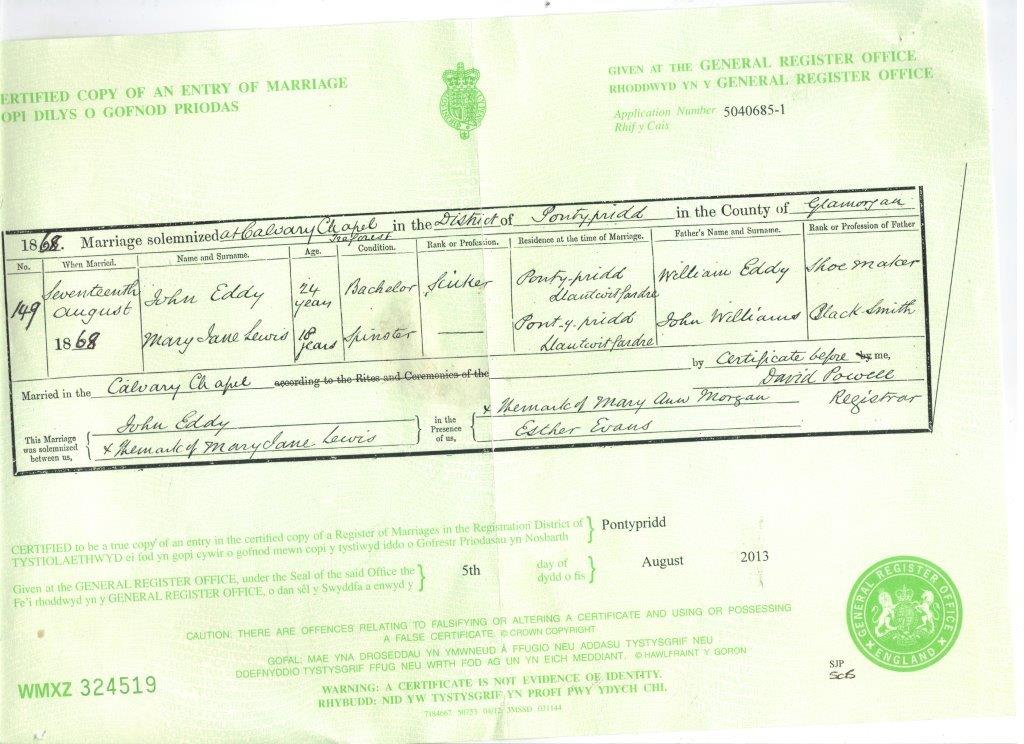 ERTIFIED COPY OF AN ENTRY OF MARRIAGE
OPI DILYS O GOFNOD PRIODAS
GIVEN AT THE GENERAL REGISTER OFFICE
RHODDWYD YN Y GENERAL REGISTER OFFICE
Application Number 5040685-1
Rhif y Cais
1868. Marriage solemnized at Calvary Chapel Treforest in the District of Pontypridd in the County of Glamorgan
No. When Married. Name and Surname. Age. Condition. Rank or Profession. Residence at the time of Marriage. Father's Name and Surname. Rank or Profession of Father
149 Seventeenth August 1868
John Eddy 24 years Bachelor Sinker Ponty-pridd Llantwit fardre William Eddy Shoe maker
Mary Jane Lewis 18 years Spinster Pont-y-pridd Llantwit fardre John Williams Black-Smith
Married in the Calvary Chapel according to the Rites and Ceremonies of the by Certificate before by me,
This Marriage was solemnized between us, John Eddy
x The mark of Mary Jane Lewis
in the Presence of us, x The mark of Mary Ann Morgan
Esther Evans
David Powell
Registrar
CERTIFIED to be a true copy of an entry in the certified copy of a Register of Marriages in the Registration District of Pontypridd
TYSTIOLAETHWYD ei fod yn gopi cywir o gofnod mewn copi y tystiwyd iddo o Gofrestr Priodasau yn Nosbarth
Given at the GENERAL REGISTER OFFICE, under the Seal of the said Office the 5th day of August 2013
Fe'i rhoddwyd yn y GENERAL REGISTER OFFICE, o dan sêl y Swyddfa a enwyd y dydd o fis
CAUTION: THERE ARE OFFENCES RELATING TO FALSIFYING OR ALTERING A CERTIFICATE AND USING OR POSSESSING
A FALSE CERTIFICATE. © CROWN COPYRIGHT
GOFAL: MAE YNA DROSEDDAU YN YMWNEUD Â FFUGIO NEU ADDASU TYSTYSGRIF NEU
DDEFNYDDIO TYSTYSGRIF FFUG NEU WRTH FOD AG UN YN EICH MEDDIANT. © HAWLFRAINT Y GORON
WARNING: A CERTIFICATE IS NOT EVIDENCE OF IDENTITY.
RHYBUDD: NID YW TYSTYSGRIF YN PROFI PWY YDYCH CHI.
WMXZ 324519
GENERAL REGISTER OFFICE
ENGLAND
SJP